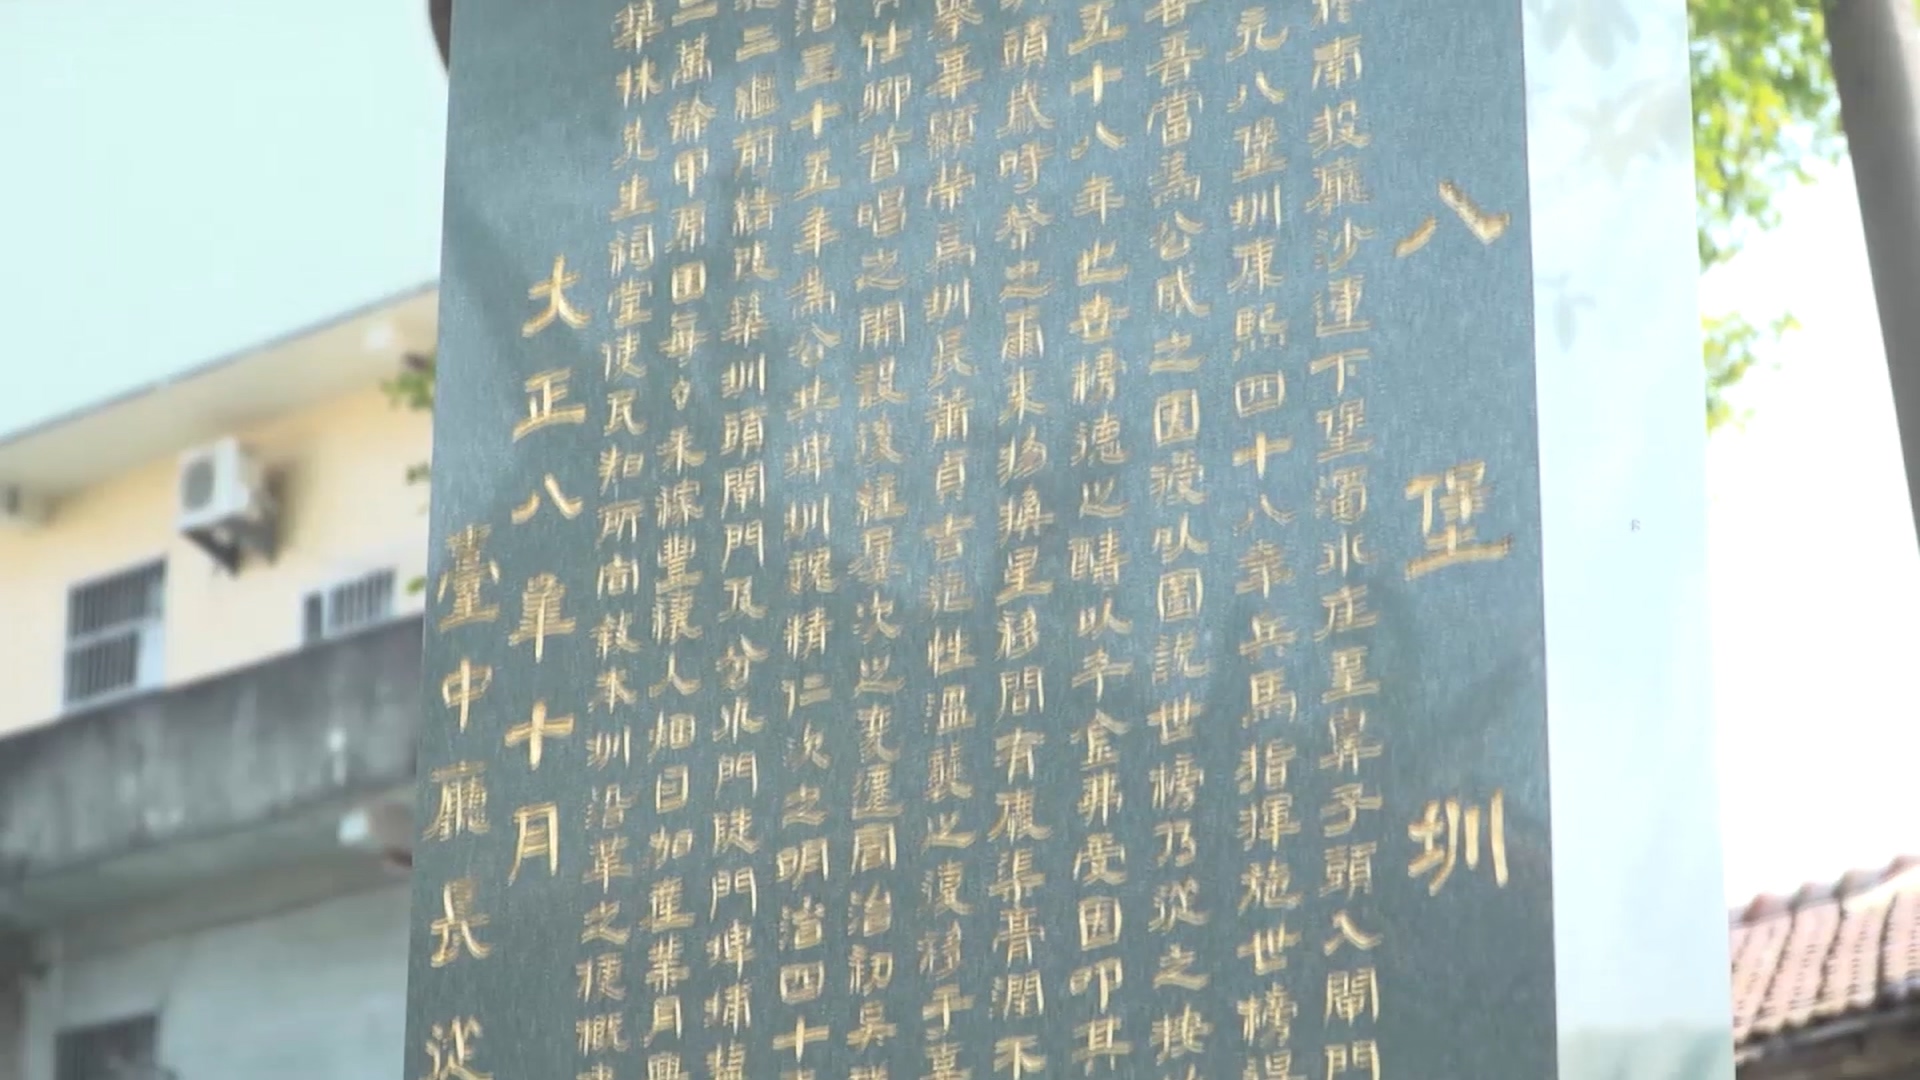 八堡圳
南投廳沙連下堡濁水庄皇鼻子頭入閘門
元八堡圳康熙四十八年兵馬指揮施世榜
吾當為公成之因授以圖說世榜乃從之按
五十八年世榜德之酬以千金弗受因叩其
頭歲時祭之爾來物換星移間有廢渠膏潤不
舉募顯榮為圳民蕭貞吉施性溫襲之後移于
仕卿首唱之開設後經屢次之變遷同治初吳
治三十五年為公共埤圳規精仁次之明治四十
二繼前結改築圳頭閘門及分水門陡門埤埔
萬餘甲原田每々禾稼豐穰人烟日加產業月興
築林先生祠堂使民知所向敍本圳沿革之梗概
大正八年十月
臺中廳長